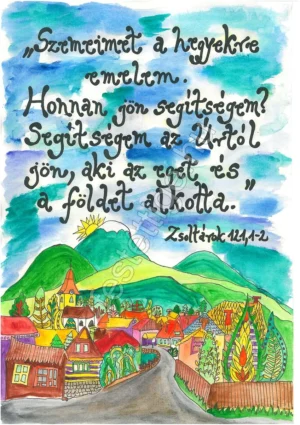 „Szemeimet a hegyekre
emelem.
Honnan jön segítségem?
Segítségem az Úrtól
jön, aki az eget és
a földet alkotta.”
Zsoltárok 121,1-2